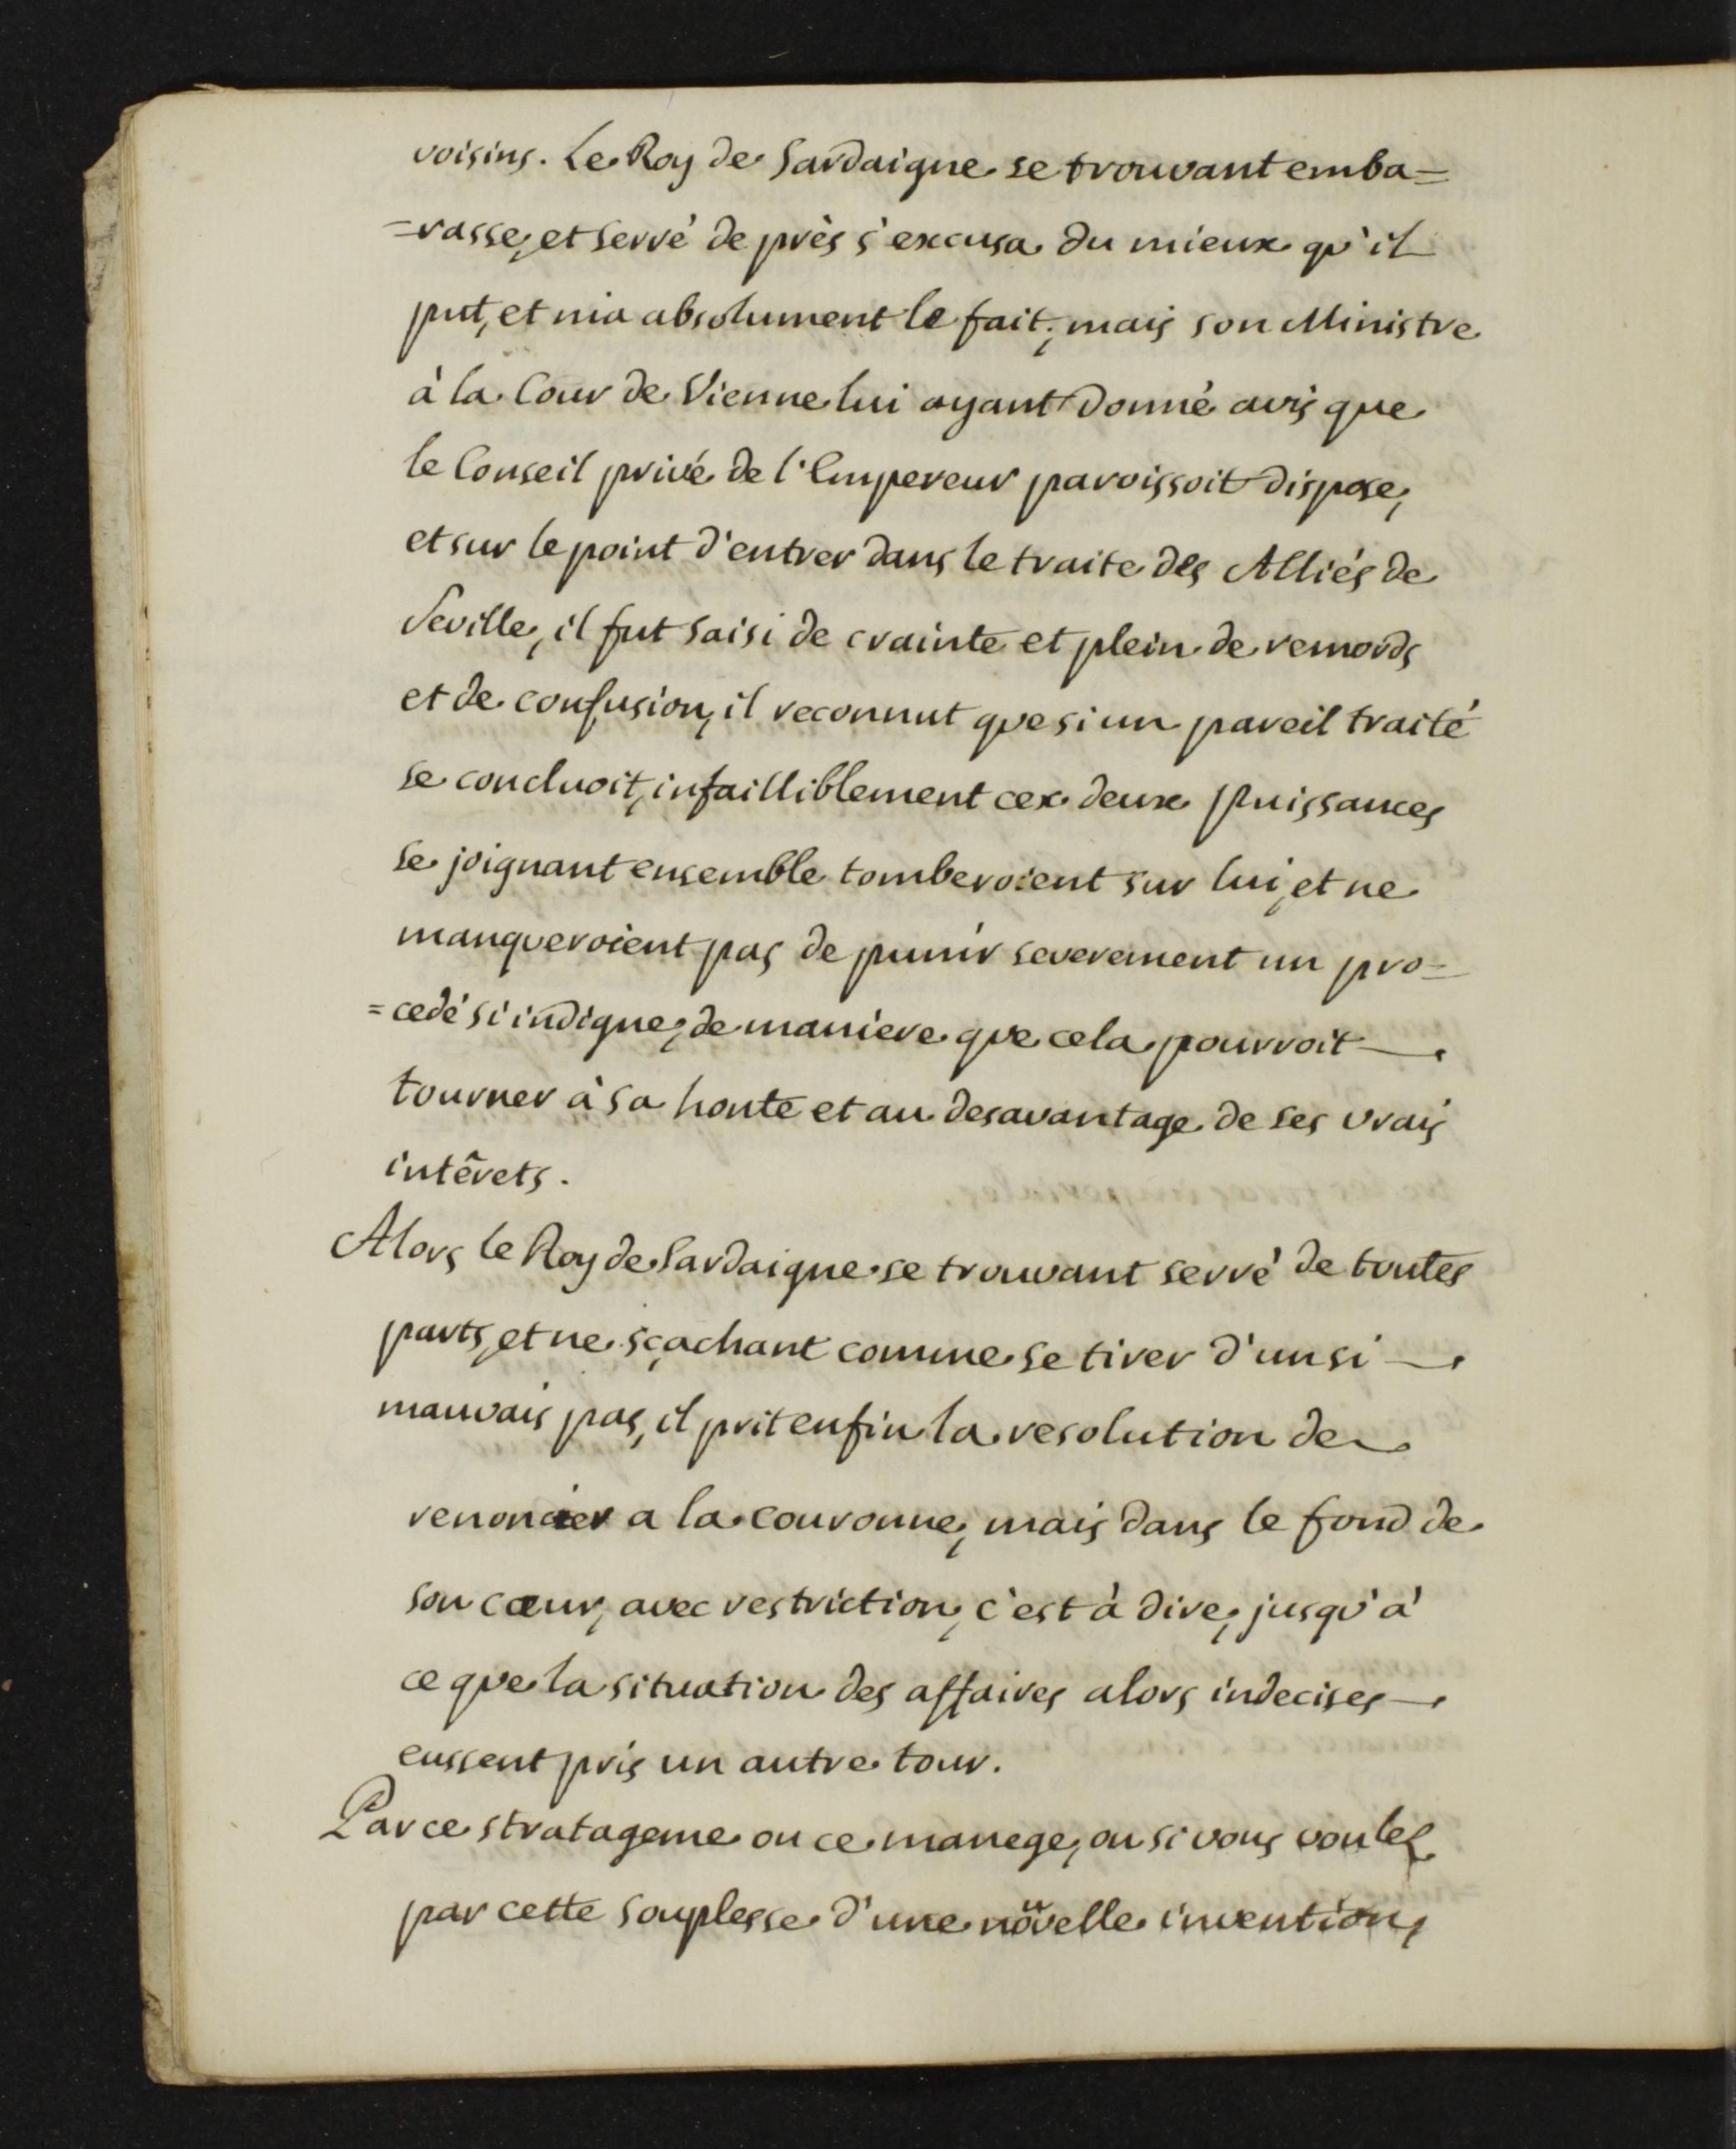 voisins. Le Roy de Sardaigne se trouvant emba=
=rasse, et serré de près s'excusa du mieux qu'il
put, et nia absolument le fait; mais son Ministre
à la Cour de Vienne lui ayant donné avis que
le Conseil privé de l'Empereur paroissoit dispose,
et sur le point d'entrer dans le traite des Alliés de
Seville, il fut saisi de crainte et plein de remords
et de confusion, il reconnut que si un pareil traité
se concluoit, infailliblement cex deux puissances
se joignant ensemble tomberoient sur lui, et ne
manqueroient pas de punir severement un pro=
=cedé si indigne, de maniere que cela pourroit
tourner à sa honte et au desavantage de ses vrais
intêrets.
Alors le Roy de Sardaigne se trouvant serré de toutes
parts, et ne sçachant comme se tirer d'un si
mauvais pas, il prit enfin la resolution de
renoncer a la couronne, mais dans le fond de
son cœur, avec restriction, c'est à dire, jusqu'à
ce que la situation des affaires alors indecises
eussent pris un autre tour.
Par ce stratageme ou ce manege, ou si vous voulez
par cette souplesse d'une nouvelle invention,